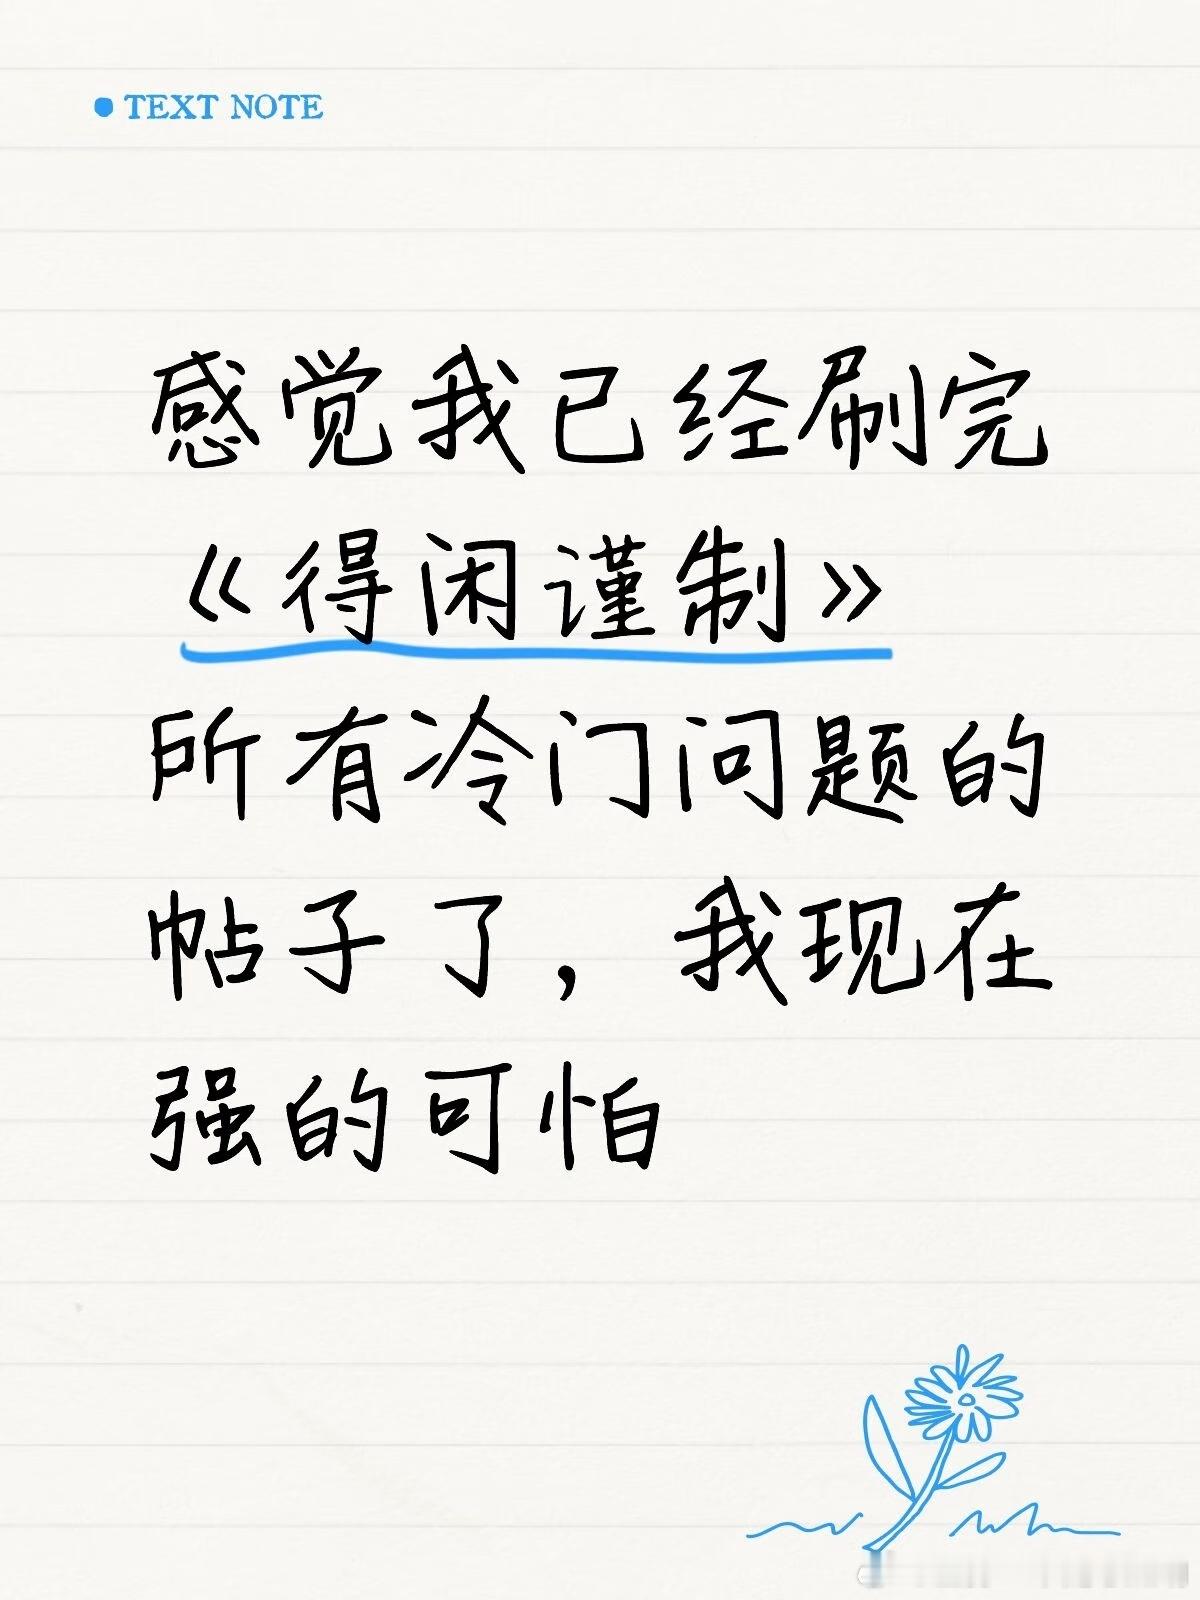 TEXT NOTE
感觉我已经刷完
《得闲谨制》
所有冷门问题的
帖子了，我现在
强的可怕